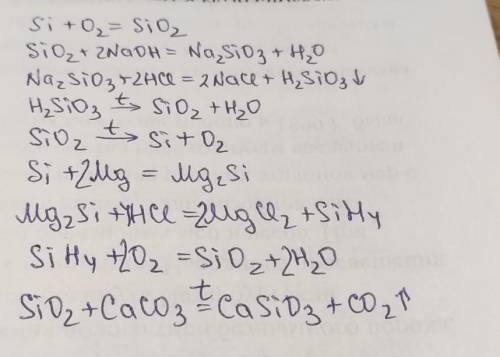 Si + O₂ = SiO₂
SiO₂ + 2NaOH = Na₂SiO₃ + H₂O
Na₂SiO₃ + 2HCl = 2NaCl + H₂SiO₃↓
H₂SiO₃ →t SiO₂ + H₂O
SiO₂ →t Si + O₂
Si + 2Mg = Mg₂Si
Mg₂Si + 4HCl = 2MgCl₂ + SiH₄
SiH₄ + 2O₂ = SiO₂ + 2H₂O
SiO₂ + CaCO₃ =t CaSiO₃ + CO₂↑